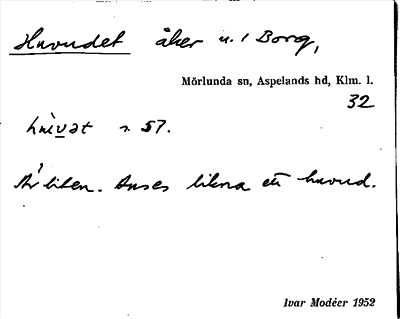 Huvudet åker u. / Borg,
Mörlunda sn, Aspelands hd, Klm. l.
32
s. 57.
Är liten. Anses likna ett huvud.
Ivar Modéer 1952